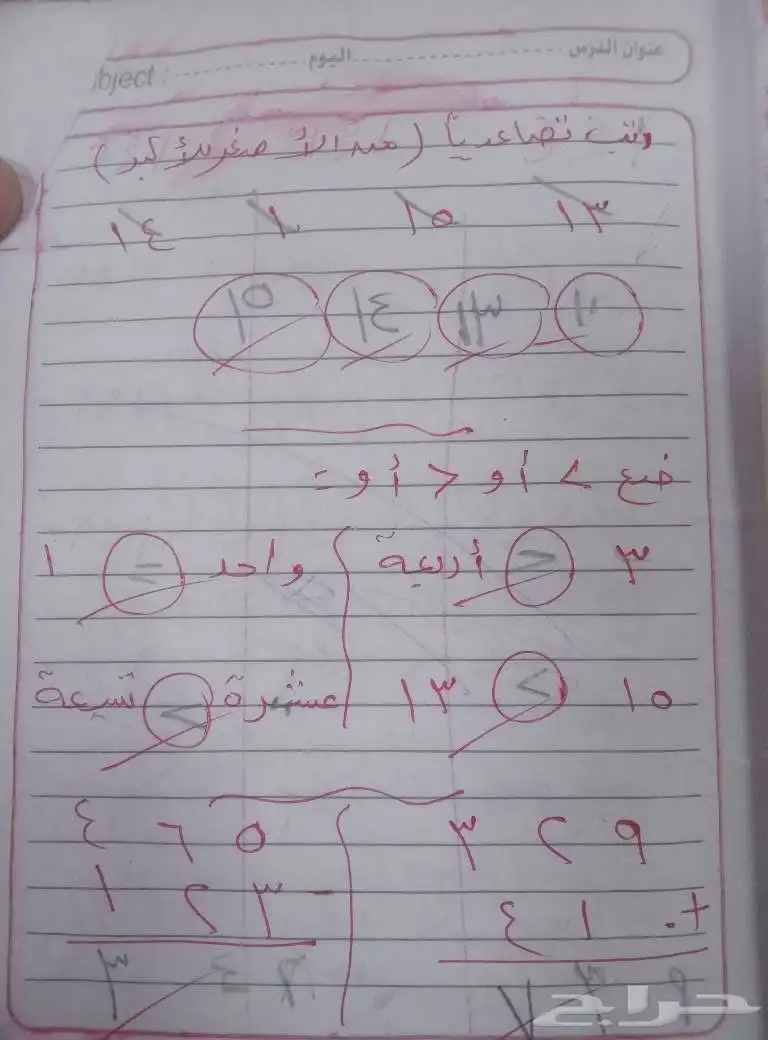 عنوان الدرس ............ اليوم ............ bject :
رتب تصاعدياً (من الأصغر للأكبر)
١٣ ١٥ ١٠ ١٤
١٠ ١٣ ١٤ ١٥
ضع > أو < أو =
٣ < أربعة واحد = ١
١٥ > ١٣ عشرة > تسعة
٣ ٢ ٩ ٤ ٦ ٥
+ ٤ ١ ٠ - ١ ٢ ٣
٧ ٣ ٩ ٣ ٤ ٢
حراج